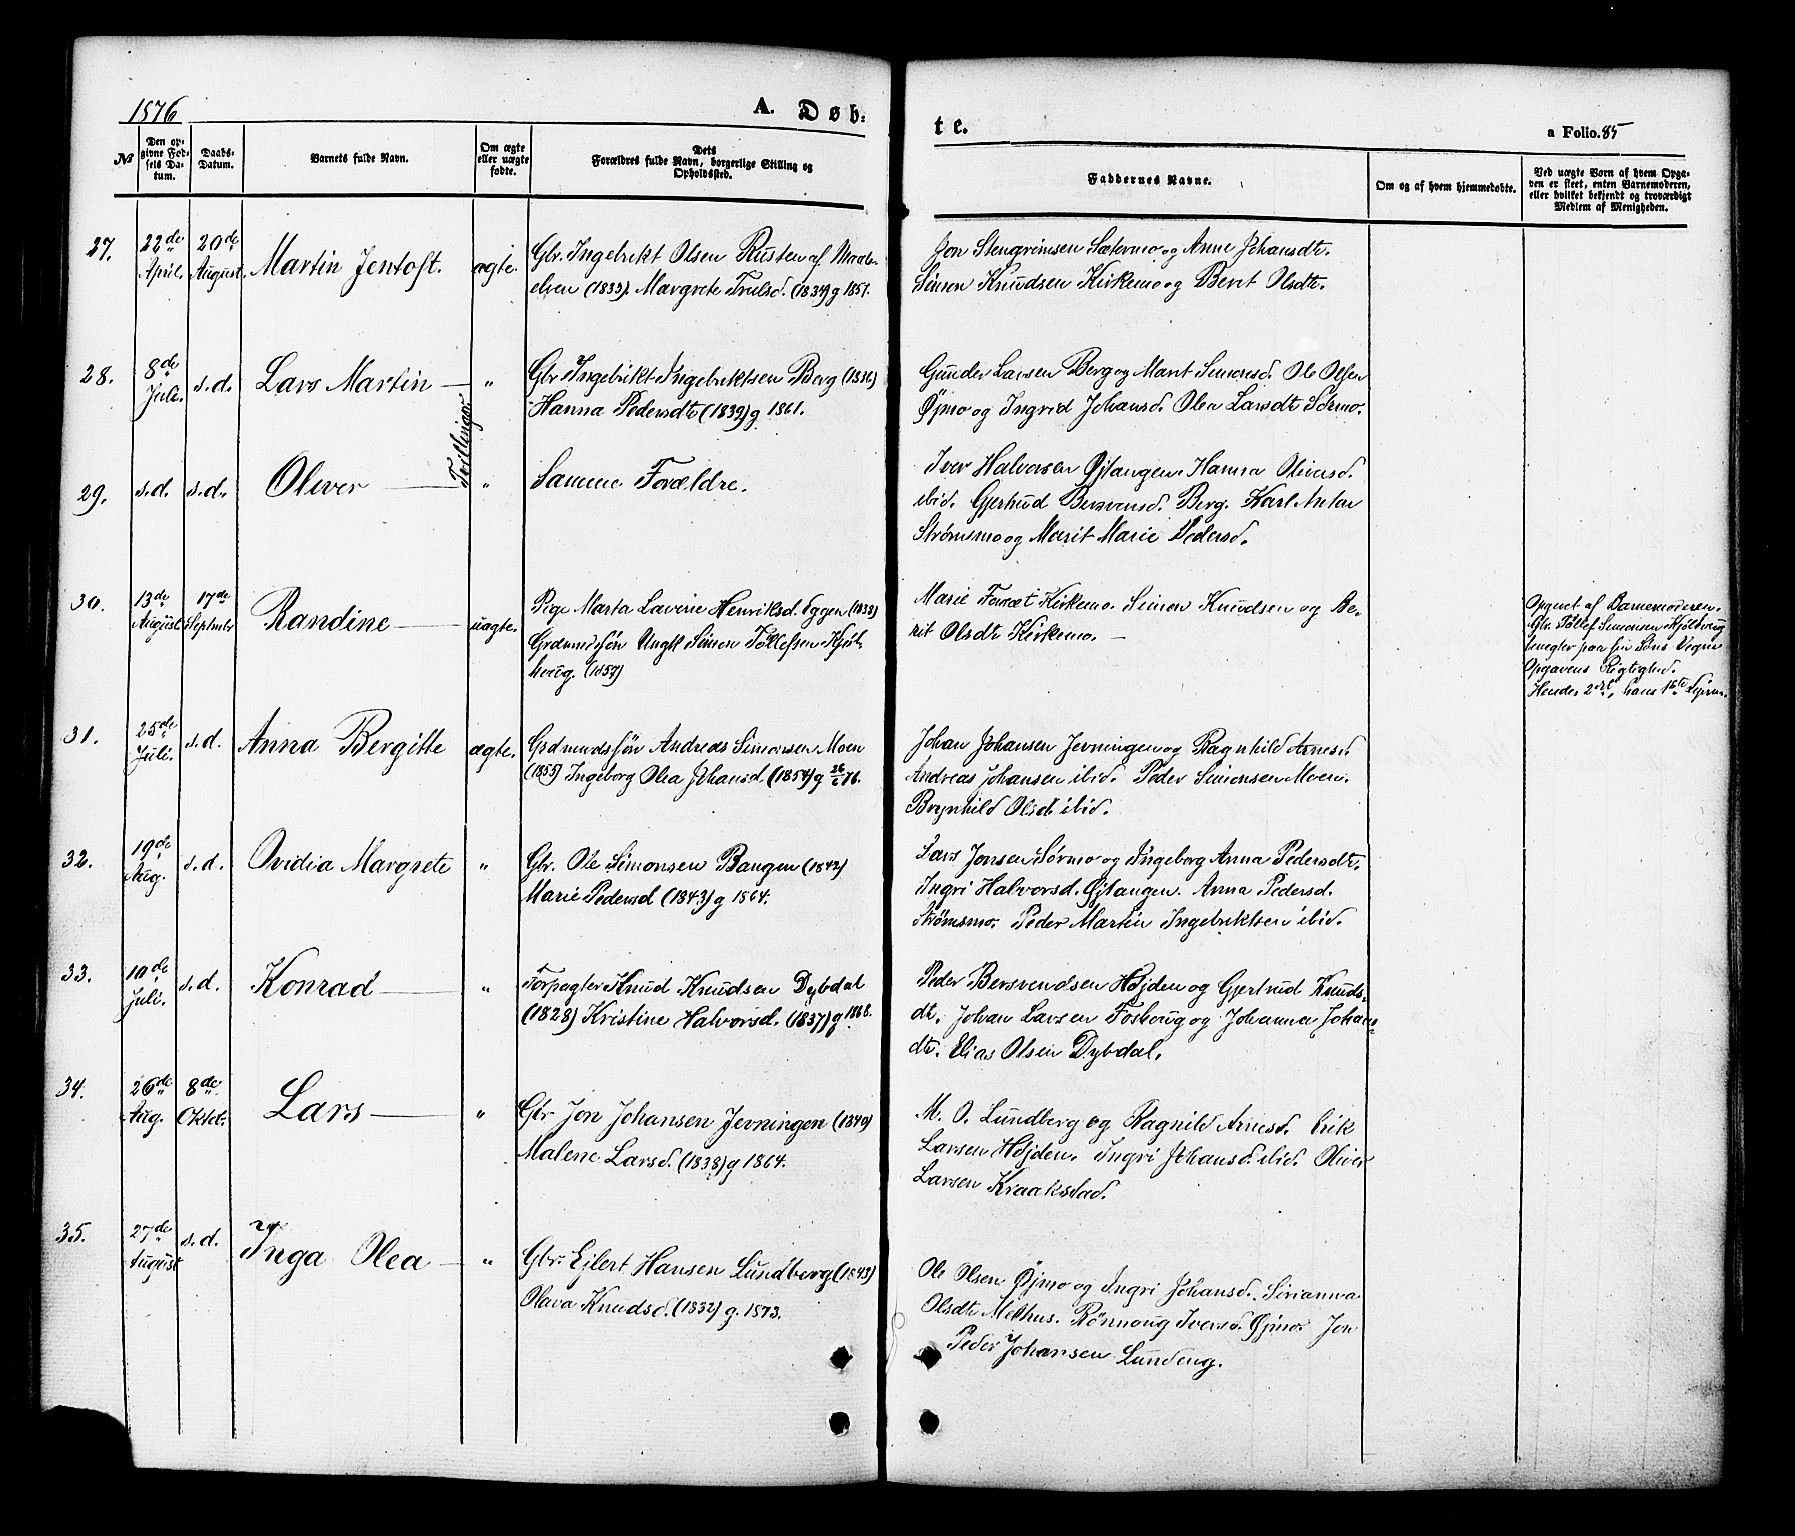 1876
A. Døb-
te.
a Folio. 85
№
Den op-
givne Fød-
sels Da-
tum.
Daabs-
Datum.
Barnets fulde Navn.
Om ægte
eller uægte
fødte.
Dets
Forældres fulde Navn, borgerlige Stilling og
Opholdssted.
Faddernes Navne.
Om og af hvem hjemmedøbte.
Ved uægte Børn af hvem Opga-
ven er skeet, enten Barnemoderen,
eller hvilket bekjendt og troværdigt
Medlem af Menigheden.
27.
22de
April.
20de
August.
Martin Jentoft.
ægte.
Gbr. Ingebrikt Olsen Rusten af Maals-
elven (1833). Margrete Trulsd. (1834) g 1857.
Jon Stengrimsen Sætermo og Anne Johansdt.
Simon Knudsen Kirkemo og Berit Olsdt.
28.
8de
Juli.
s.d.
Lars Martin —
Tvillinger
"
Gbr Ingebrikt Ingebriktsen Berg (1836)
Hanna Pedersdt (1839) g 1861.
Gunder Larsen Berg og Marit Simonsd. Ole Olsen
Øjmo og Ingrid Johansd. Olea Larsdt Sørmo.
29.
s.d.
s.d.
Oliver —
"
Samme Forældre.
Iver Halvorsen Øjtangen. Hanna Oliversd.
ibid. Gjertrud Bersvensd. Berg. Karl Anton
Strømsmo og Marit Marie Pedersd.
30.
13de
August.
17de
Septmbr
Randine —
uægte.
Pige Marta Lavine Henriksd. Eggen (1838)
Grdmndssøn Ungk Simon Tollefsen Kjøl-
houg. (1857)
Marie Foræt Kirkemo. Simon Knudsen og Be-
rit Olsdt Kirkemo. —
Opgivet af Barnemoderen.
Gbr. Tollef Simonsen Kjølhoug
benegter paa sin Søns Vegne
Opgavens Rigtighed.
Hendes 2det, hans 1ste
31.
25de
Juli.
s.d.
Anna Bergitte
ægte.
Grdmndssøn Andreas Simonsen Moen
(1855) Ingeborg Olea Johansd (1854) g 26/6 76.
Johan Johansen Jevningen og Ragnhild Arnesd.
Andreas Johansen ibid. Peder Simonsen Moen.
Brynhild Olsdt ibid.
32.
19de
Aug.
s.d.
Ovidia Margrete
"
Gbr. Ole Simonsen Bangen (1842)
Marie Pedersd (1843) g 1864.
Lars Jonsen Sørmo og Ingeborg Anna Pedersdt.
Ingri Halvorsd. Øjtangen. Anna Pedersd.
Strømsmo. Peder Martin Ingebriktsen ibid.
33.
10de
Juli.
s.d.
Konrad —
"
Forpagter Knud Knudsen Dybdal
(1828) Kristine Halvorsd. (1837) g 1868.
Peder Bersvendsen Højden og Gjertrud Knuds-
dt. Johan Larsen Foshoug og Johanna Johans-
dt. Elias Olsen Dybdal.
34.
26de
Aug.
8de
Oktob.
Lars —
"
Gbr Jon Johansen Jevningen (1840)
Malene Larsd. (1838) g 1864.
M. O. Lundberg og Ragnild Arnesd. Erik
Larsen Højden. Ingri Johansd. ibid. Oliver
Larsen Kraakstad.
35.
27de
August
s.d.
Inga Olea —
"
Gbr. Ejlert Hansen Lundberg (1843)
Olava Knudsd. (1832) g. 1873.
Ole Olsen Øjmo og Ingri Johansd. Sirianna
Olsdt Melhus. Rönnaug Iversd. Øjmo. Jon
Peder Johansen Lundeng.